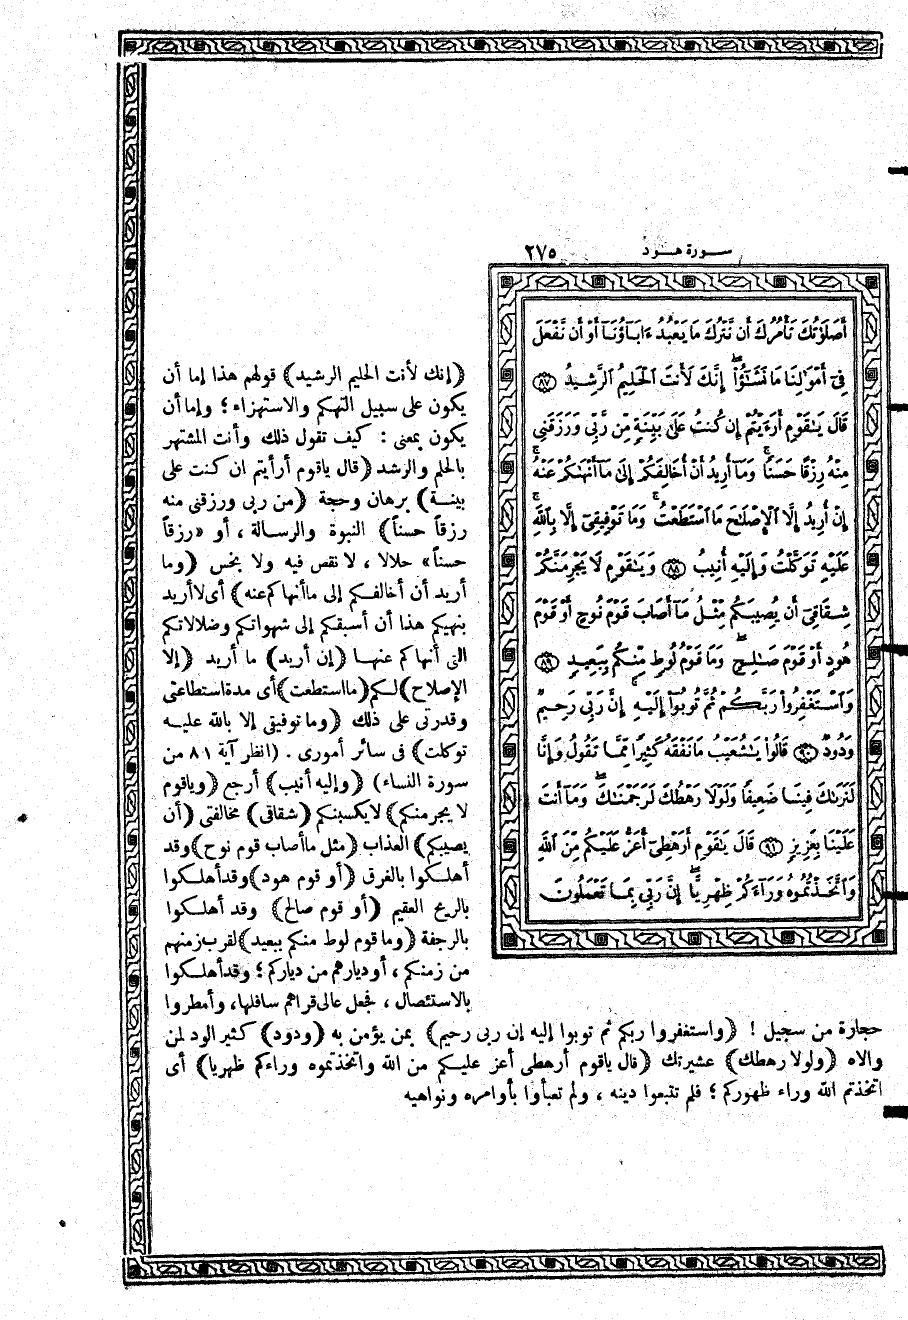 سورة هود ٢٧٥
أَصَلَوٰتُكَ تَأْمُرُكَ أَن نَّتْرُكَ مَا يَعْبُدُ ءَابَآؤُنَآ أَوْ أَن نَّفْعَلَ
فِىٓ أَمْوَٰلِنَا مَا نَشَـٰٓؤُا۟ ۖ إِنَّكَ لَأَنتَ ٱلْحَلِيمُ ٱلرَّشِيدُ ﴿٨٧﴾
قَالَ يَـٰقَوْمِ أَرَءَيْتُمْ إِن كُنتُ عَلَىٰ بَيِّنَةٍ مِّن رَّبِّى وَرَزَقَنِى
مِنْهُ رِزْقًا حَسَنًا ۚ وَمَآ أُرِيدُ أَنْ أُخَالِفَكُمْ إِلَىٰ مَآ أَنْهَىٰكُمْ عَنْهُ ۚ
إِنْ أُرِيدُ إِلَّا ٱلْإِصْلَـٰحَ مَا ٱسْتَطَعْتُ ۚ وَمَا تَوْفِيقِىٓ إِلَّا بِٱللَّهِ ۚ
عَلَيْهِ تَوَكَّلْتُ وَإِلَيْهِ أُنِيبُ ﴿٨٨﴾ وَيَـٰقَوْمِ لَا يَجْرِمَنَّكُمْ
شِقَاقِىٓ أَن يُصِيبَكُم مِّثْلُ مَآ أَصَابَ قَوْمَ نُوحٍ أَوْ قَوْمَ
هُودٍ أَوْ قَوْمَ صَـٰلِحٍ ۚ وَمَا قَوْمُ لُوطٍ مِّنكُم بِبَعِيدٍ ﴿٨٩﴾
وَٱسْتَغْفِرُوا۟ رَبَّكُمْ ثُمَّ تُوبُوٓا۟ إِلَيْهِ ۚ إِنَّ رَبِّى رَحِيمٌ
وَدُودٌ ﴿٩٠﴾ قَالُوا۟ يَـٰشُعَيْبُ مَا نَفْقَهُ كَثِيرًا مِّمَّا تَقُولُ وَإِنَّا
لَنَرَىٰكَ فِينَا ضَعِيفًا ۖ وَلَوْلَا رَهْطُكَ لَرَجَمْنَـٰكَ ۖ وَمَآ أَنتَ
عَلَيْنَا بِعَزِيزٍ ﴿٩١﴾ قَالَ يَـٰقَوْمِ أَرَهْطِىٓ أَعَزُّ عَلَيْكُم مِّنَ ٱللَّهِ
وَٱتَّخَذْتُمُوهُ وَرَآءَكُمْ ظِهْرِيًّا ۖ إِنَّ رَبِّى بِمَا تَعْمَلُونَ
(إنك لأنت الحليم الرشيد) قولهم هذا إما أن
يكون على سبيل التهكم والاستهزاء؛ وإما أن
يكون بمعنى : كيف تقول ذلك وأنت المشتهر
بالحلم والرشد (قال ياقوم أرأيتم ان كنت على
بينة) برهان وحجة (من ربى ورزقنى منه
رزقاً حسناً) النبوة والرسالة ، أو «رزقاً
حسناً» حلالا ، لا نقص فيه ولا بخس (وما
أريد أن أخالفكم إلى ماأنهاكم عنه) أى لا أريد
بنهيكم هذا أن أسبقكم إلى شهواتكم وضلالاتكم
التى أنهاكم عنها (إن أريد) ما أريد (إلا
الإصلاح) لكم (ما استطعت) أى مدة استطاعتى
وقدرتى على ذلك (وما توفيقى إلا بالله عليه
توكلت) فى سائر أمورى . (انظر آية ٨١ من
سورة النساء) (وإليه أنيب) أرجع (وياقوم
لا يجرمنكم) لا يكسبنكم (شقاقى) مخالفتى (أن
يصيبكم) العذاب (مثل ماأصاب قوم نوح) وقد
أهلكوا بالغرق (أو قوم هود) وقد أهلكوا
بالريح العقيم (أو قوم صالح) وقد أهلكوا
بالرجفة (وما قوم لوط منكم ببعيد) لقرب زمنهم
من زمنكم ، أو ديارهم من دياركم ؛ وقد أهلكوا
بالاستئصال ، فجعل عالى قراهم سافلها، وأمطروا
حجارة من سجيل ! (واستغفروا ربكم ثم توبوا إليه إن ربى رحيم) بمن يؤمن به (ودود) كثير الود لمن
والاه (ولولا رهطك) عشيرتك (قال ياقوم أرهطى أعز عليكم من الله واتخذتموه وراءكم ظهريا) أى
اتخذتم الله وراء ظهوركم ؛ فلم تتبعوا دينه ، ولم تعبأوا بأوامره ونواهيه